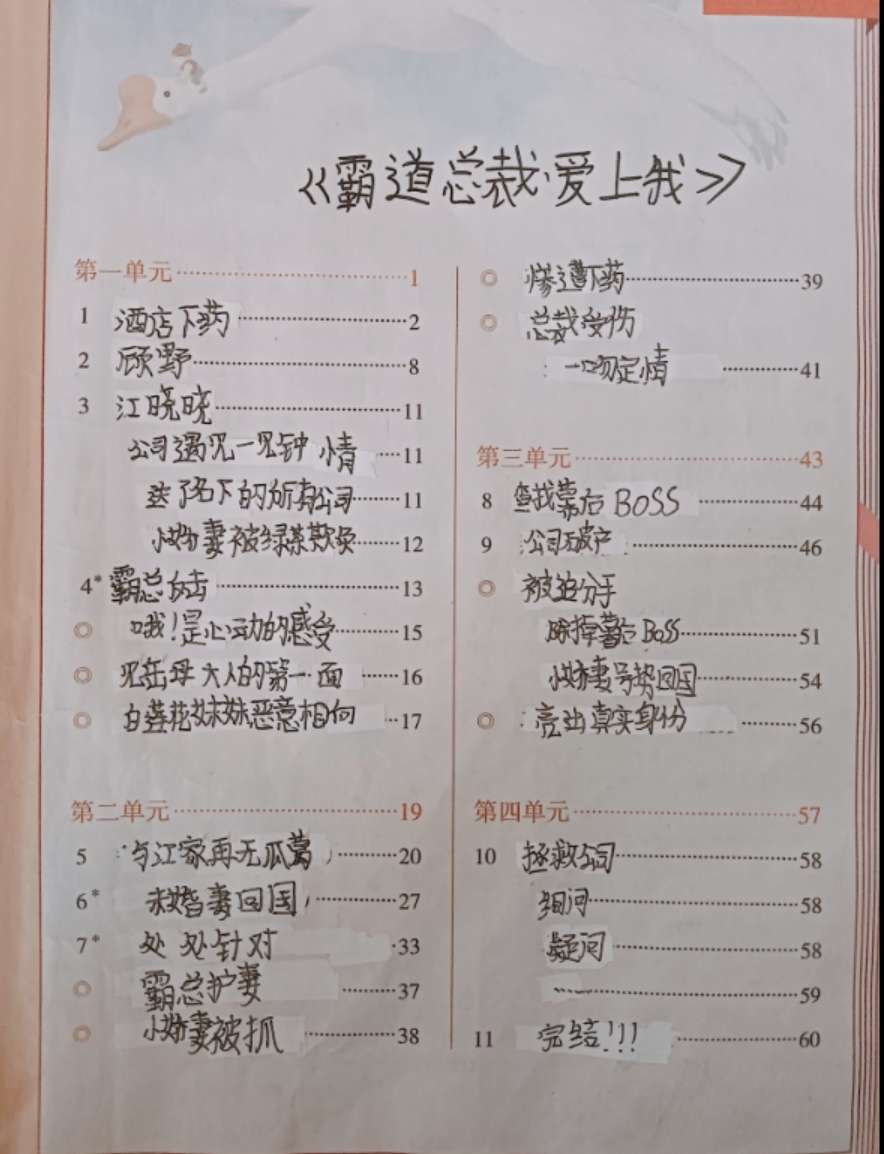 《霸道总裁爱上我》
第一单元 1
1 酒店下药 2
2 顾野 8
3 江晓晓 11
公司遇见一见钟情 11
送了名下的所有公司 11
小娇妻被绿茶欺负 12
4* 霸总 13
◎ 哦!是心动的感受 15
◎ 见岳母大人的第一面 16
◎ 白莲花妹妹恶意相向 17
第二单元 19
5 与江家再无瓜葛 20
6* 未婚妻回国 27
7* 处处针对 33
◎ 霸总护妻 37
◎ 小娇妻被抓 38
◎ 惨遭下药 39
◎ 总裁受伤
一吻定情 41
第三单元 43
8 查找幕后BOSS 44
9 公司破产 46
◎ 被迫分手
除掉幕后BOSS 51
小娇妻号势回国 54
◎ 亮出真实身份 56
第四单元 57
10 拯救公司 58
细问 58
疑问 58
59
11 完结!!! 60